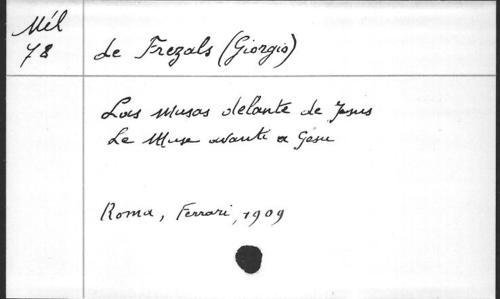 Mél
78
de Frezals (Giorgio)
Las Musas delante de Jesus
Le Muse avanti a Gesu
Roma, Ferrari, 1909